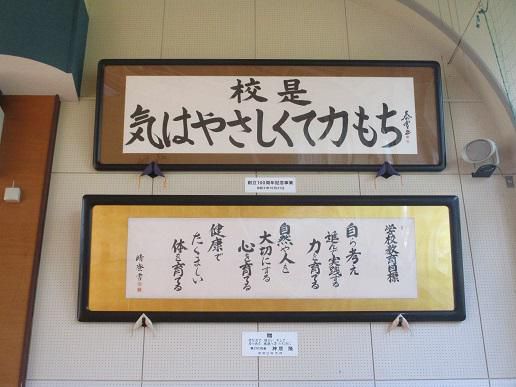 校是
気はやさしくて力もち
創立100周年記念事業
学校教育目標
自ら考え
進んで実践する
力を育てる
自然や人を
大切にする
心を育てる
健康で
たくましい
体を育てる
贈